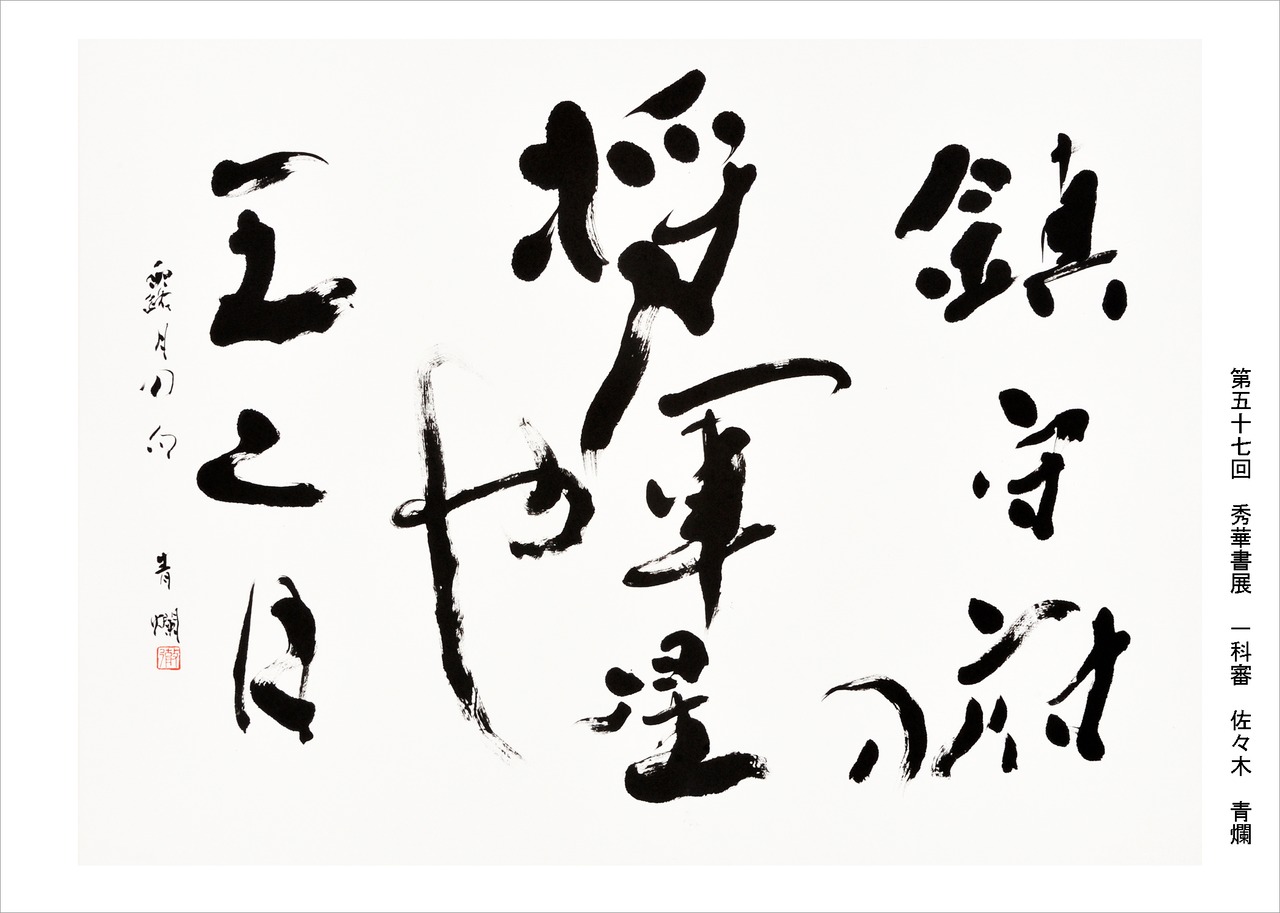 第五十七回 秀華書展 一科審 佐々木 青爛
鎮守府の
将軍星
や
露月の句 青爛